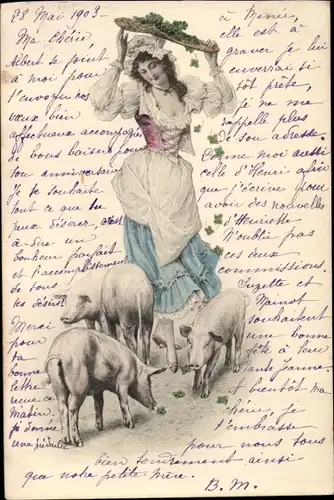 28 Mai 1903
Ma Chérie,
Albert se joint
à moi pour
t'envoyer nos
vœux bien
affectueux accompagnés
de bons baisers pour
ton anniversaire
Je te souhaite
tout ce que tu
peux désirer, c'est
à-dire un
bonheur parfait
et l'accomplissement
de tous
tes désirs!
Merci
pour
ta
bonne
lettre
reçue ce
Matin.
je donne
une
à
elle est à
graver je lui
enverrai si
tôt prête,
je ne me
rappelle plus
de son adresse
Donne moi aussi
celle d'Henri afin
que j'écrive pour
avoir des nouvelles
d'Henriette
N'oublie pas
ces deux
commissions.
Suzette et
souhaitent
une bonne
fête à leur
tante Jeanne.
à bientôt ma
chérie, je
t'embrasse
pour nous tous
bien tendrement ainsi
que notre petite mère.
B. M.